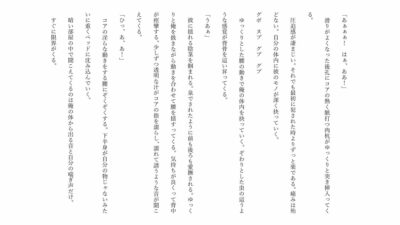 「あぁぁぁ！　はぁ、ああ！」
　滑りがよくなった後孔にコアの熱く脈打つ肉杭がゆっくりと突き挿入ってく
る。
　圧迫感が凄まじい。それでも最初に犯された時よりずっと楽である。痛みは殆
どない。自分の体内に彼のモノが深く挟っていく。
グポ　ヌプ　グプ　グプ
　ゆっくりとした腰の動きで俺の体内を抉っていく。ぞわりとした虫の這うよ
うな感覚が背骨を這い昇ってくる。
「うああ」
　波に揺れる陰茎を掴まれる。茹でされたように前も後ろも愛撫される。ゆっく
りと俺を抜きながら動きを合わせて腰を揺すってくる。気持ちが良くって背中
が痙攣する。少しずつ透明な汁がコアの指を濡らし、濡れて滴うような音が聞こ
えてくる。
「ひっ、あ、あ！」
　コアの淫らな動きをする腰にぞくぞくする。下半身が自分の物じゃないみた
いに重くベッドに沈み込んでいく。
　暗い部屋の中で聞こえてくるのは俺の体から出る音と自分の喘ぎ声だけ。
　すぐに限界がくる。